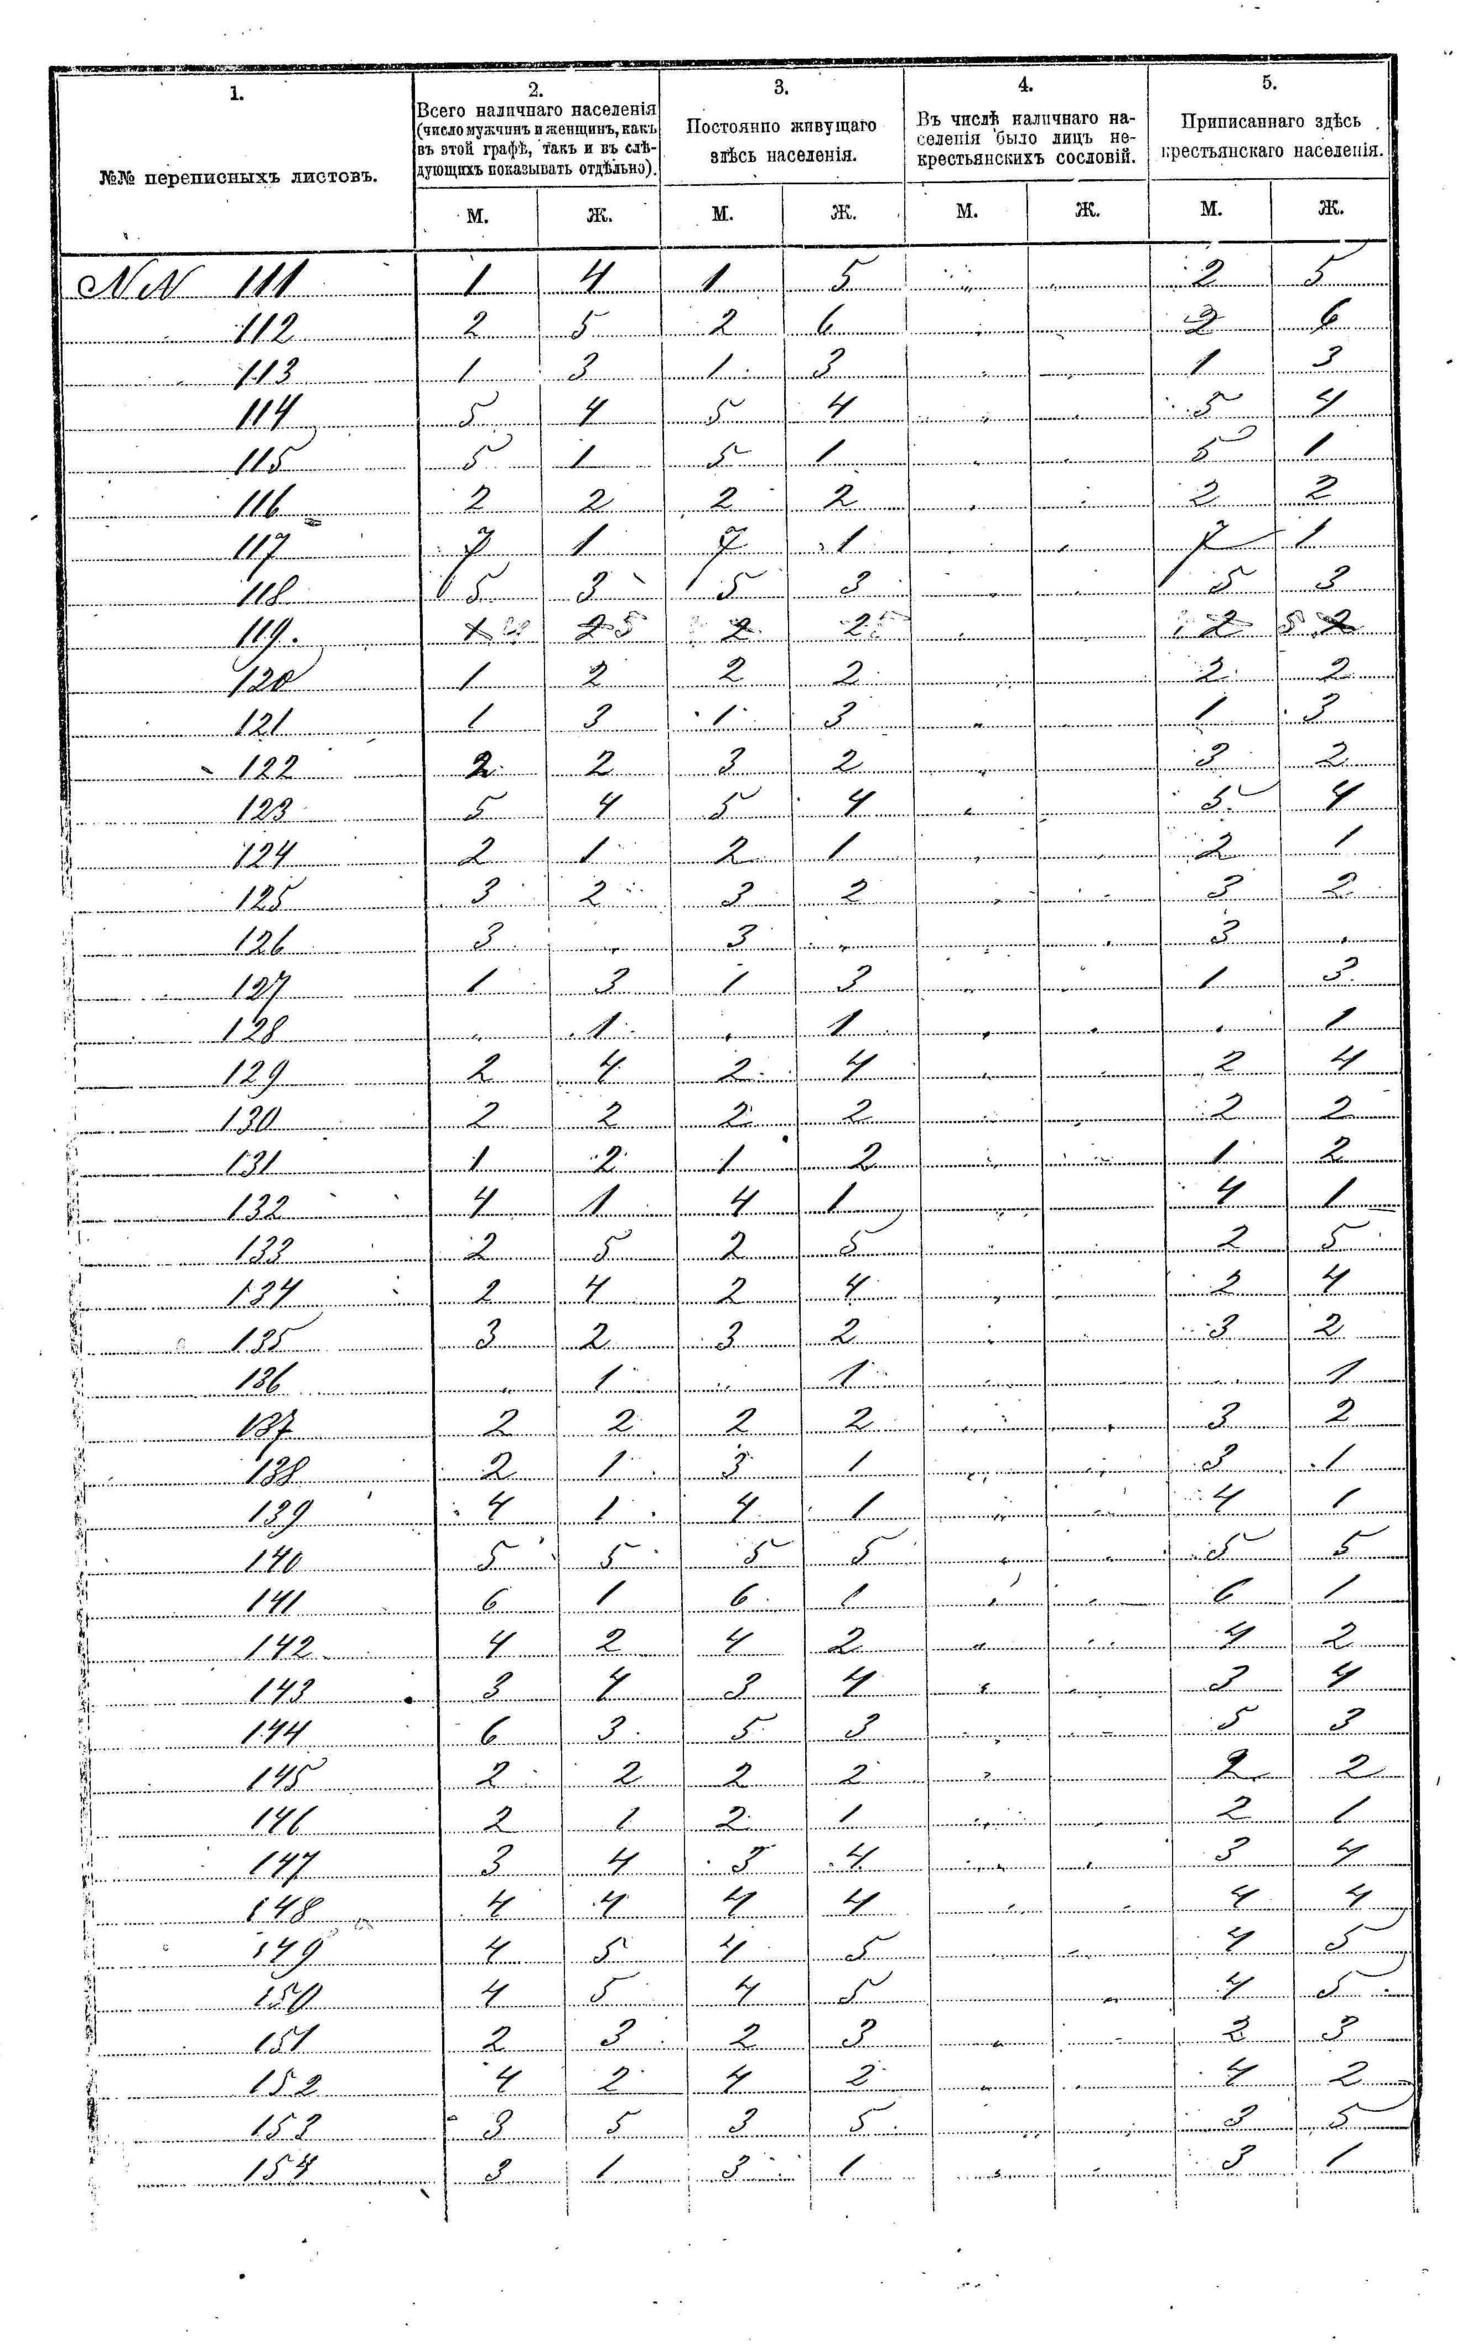 1. 2. 3. 4. 5.
№№ переписныхъ листовъ.
Всего наличнаго населенія
(число мужчинъ и женщинъ, какъ
въ этой графѣ, такъ и въ слѣ-
дующихъ показывать отдѣльно).
Постоянно живущаго
здѣсь населенія.
Въ числѣ наличнаго на-
селенія было лицъ не-
крестьянскихъ сословій.
Приписаннаго здѣсь
крестьянскаго населенія.
М. Ж. М. Ж. М. Ж. М. Ж.
NN 111 1 4 1 5 „ „ 2 5
112 2 5 2 6 „ „ 2 6
113 1 3 1 3 „ „ 1 3
114 5 4 5 4 „ „ 5 4
115 5 1 5 1 „ „ 5 1
116 2 2 2 2 „ „ 2 2
117 7 1 7 1 „ „ 7 1
118 5 3 5 3 „ „ 5 3
119. „ „
120 1 2 2 2 „ „ 2 2
121 1 3 1 3 „ „ 1 3
122 2 2 3 2 „ „ 3 2
123 5 4 5 4 „ „ 5 4
124 2 1 2 1 „ „ 2 1
125 3 2 3 2 „ „ 3 2
126 3 „ 3 „ „ „ 3 „
127 1 3 1 3 „ „ 1 3
128 „ 1 „ 1 „ „ „ 1
129 2 4 2 4 „ „ 2 4
130 2 2 2 2 „ „ 2 2
131 1 2 1 2 „ „ 1 2
132 4 1 4 1 „ „ 4 1
133 2 5 2 5 „ „ 2 5
134 2 4 2 4 „ „ 2 4
135 3 2 3 2 „ „ 3 2
136 „ 1 „ 1 „ „ „ 1
137 2 2 2 2 „ „ 3 2
138 2 1 3 1 „ „ 3 1
139 4 1 4 1 „ „ 4 1
140 5 5 5 5 „ „ 5 5
141 6 1 6 1 „ „ 6 1
142 4 2 4 2 „ „ 4 2
143 3 4 3 4 „ „ 3 4
144 6 3 5 3 „ „ 5 3
145 2 2 2 2 „ „ 2 2
146 2 1 2 1 „ „ 2 1
147 3 4 3 4 „ „ 3 4
148 4 4 4 4 „ „ 4 4
149 4 5 4 5 „ „ 4 5
150 4 5 4 5 „ „ 4 5
151 2 3 2 3 „ „ 2 3
152 4 2 4 2 „ „ 4 2
153 3 5 3 5 „ „ 3 5
154 3 1 3 1 „ „ 3 1